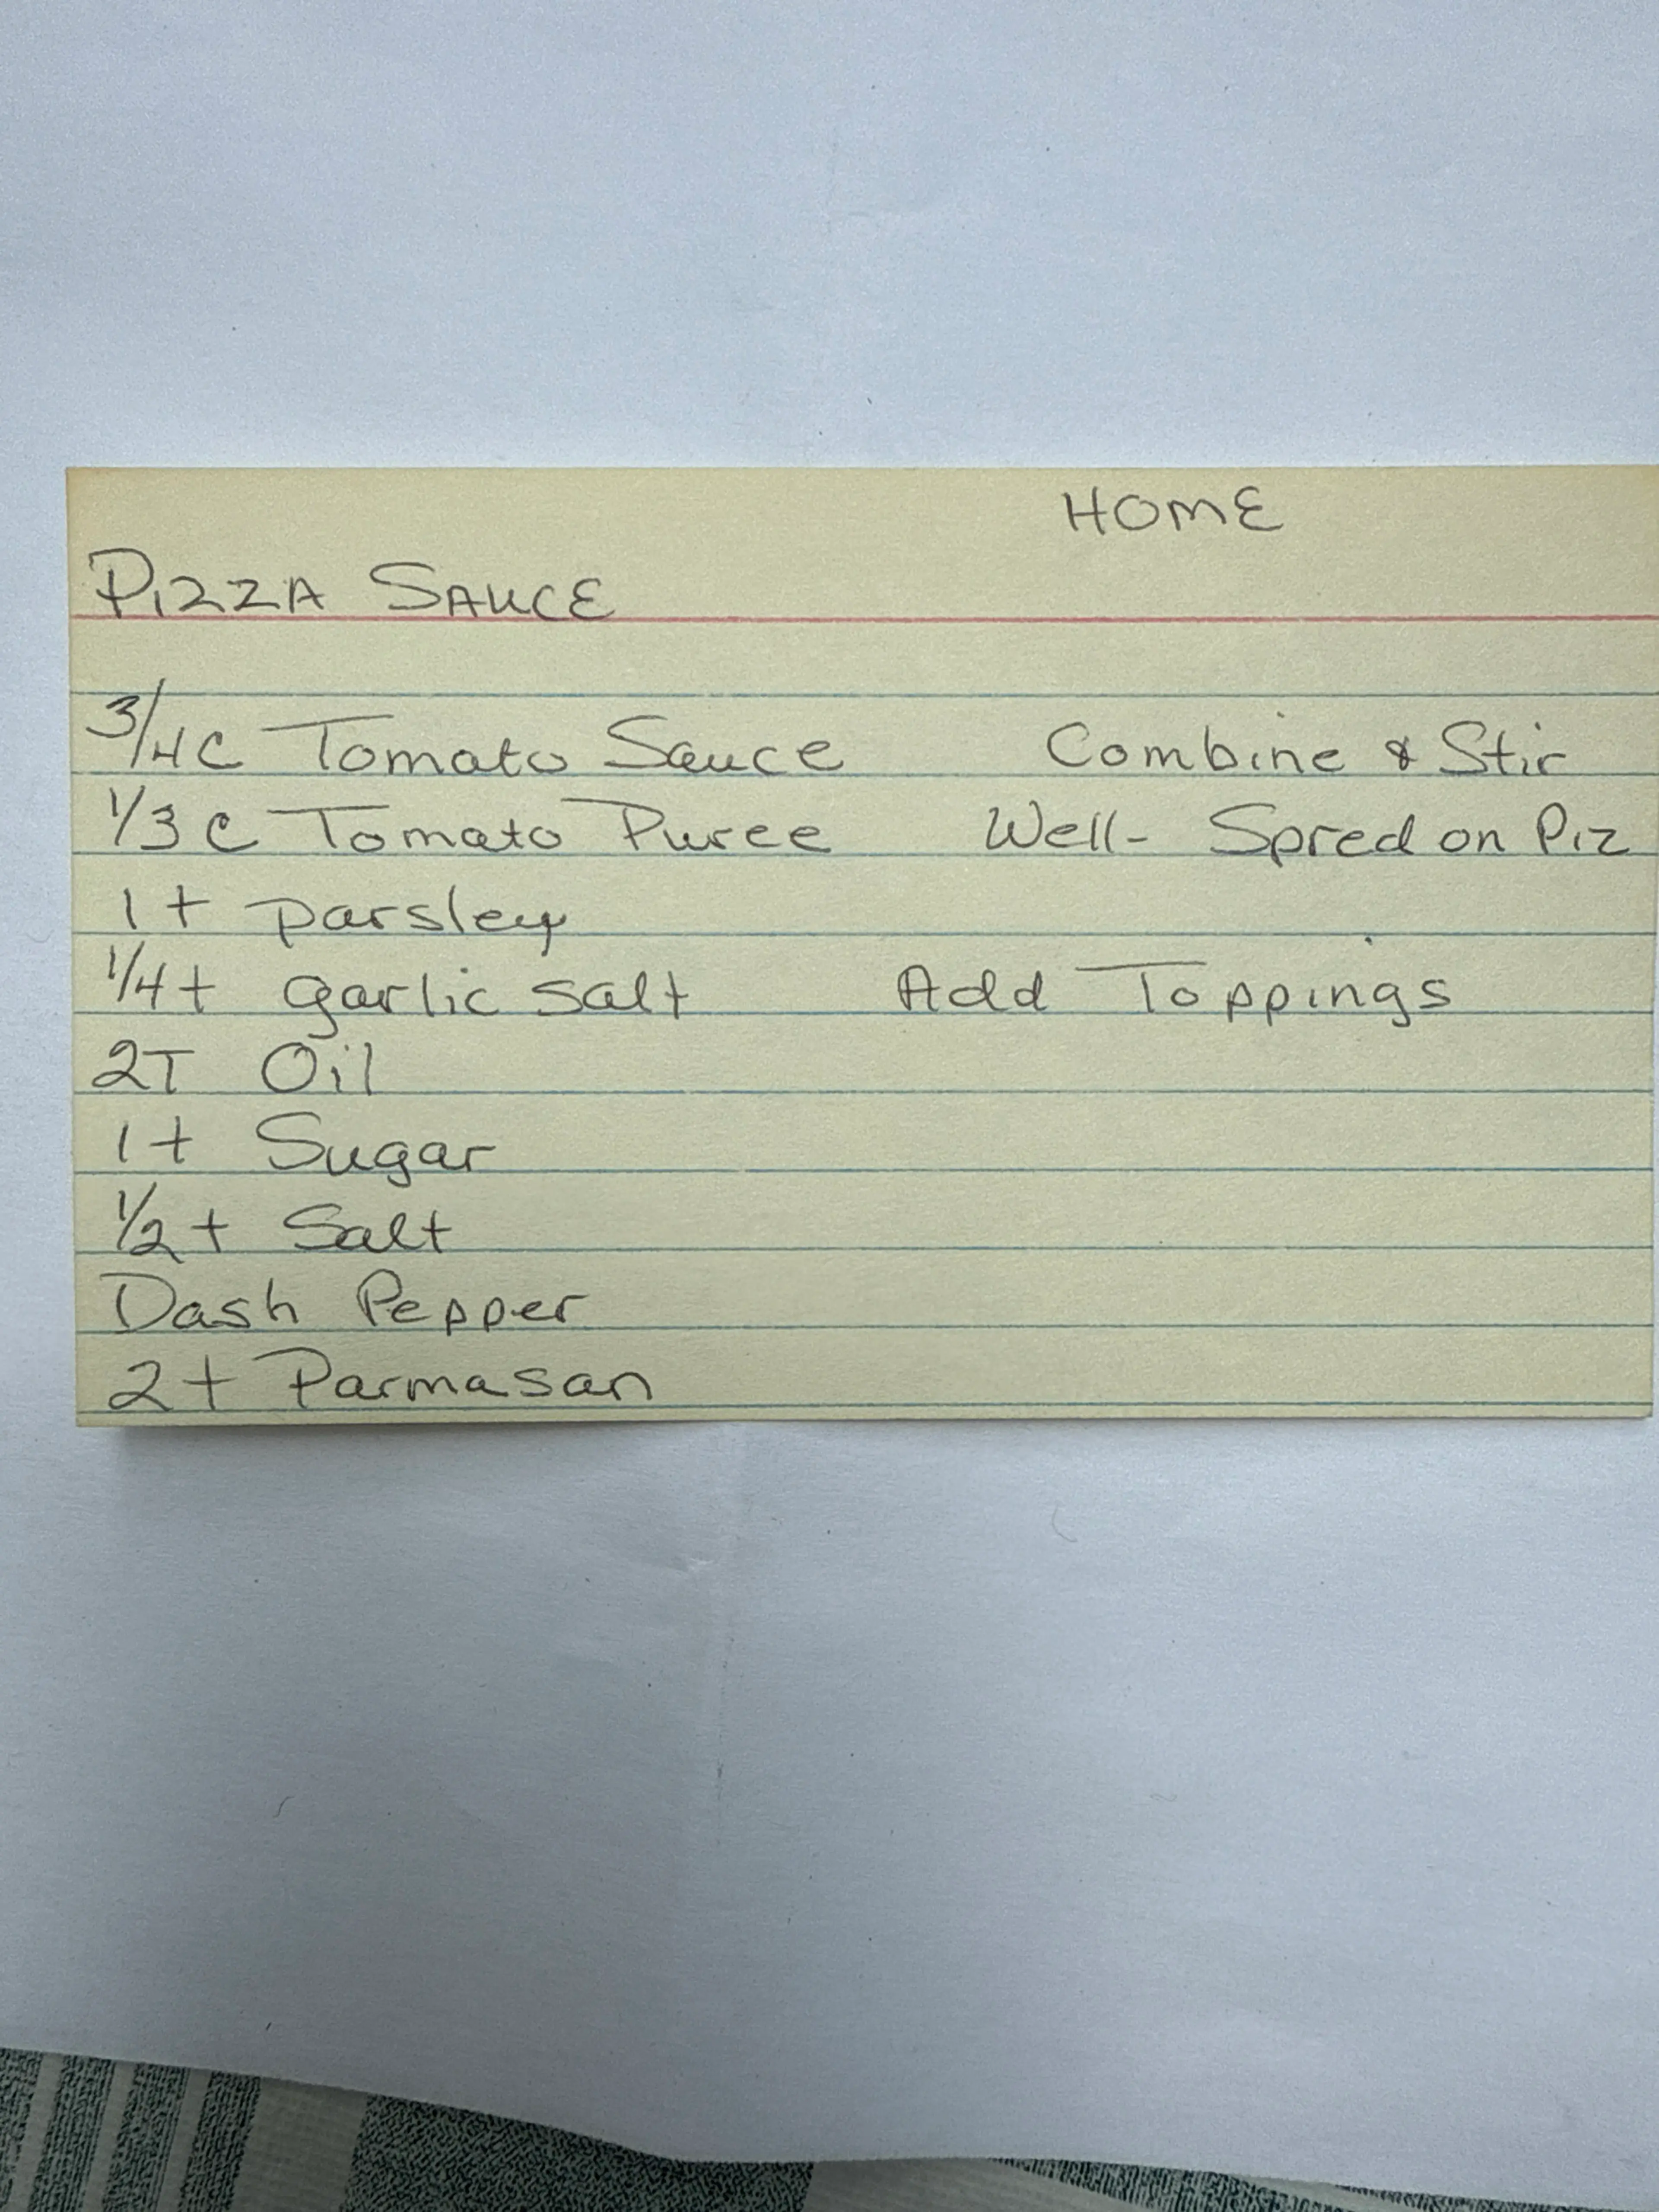 HOME
PIZZA SAUCE
3/4C Tomato Sauce
1/3 C Tomato Puree
1 t parsley
1/4 t garlic salt
2T Oil
1 t Sugar
1/2 t Salt
Dash Pepper
2 t Parmasan
Combine & Stir
Well- Spred on Piz
Add Toppings